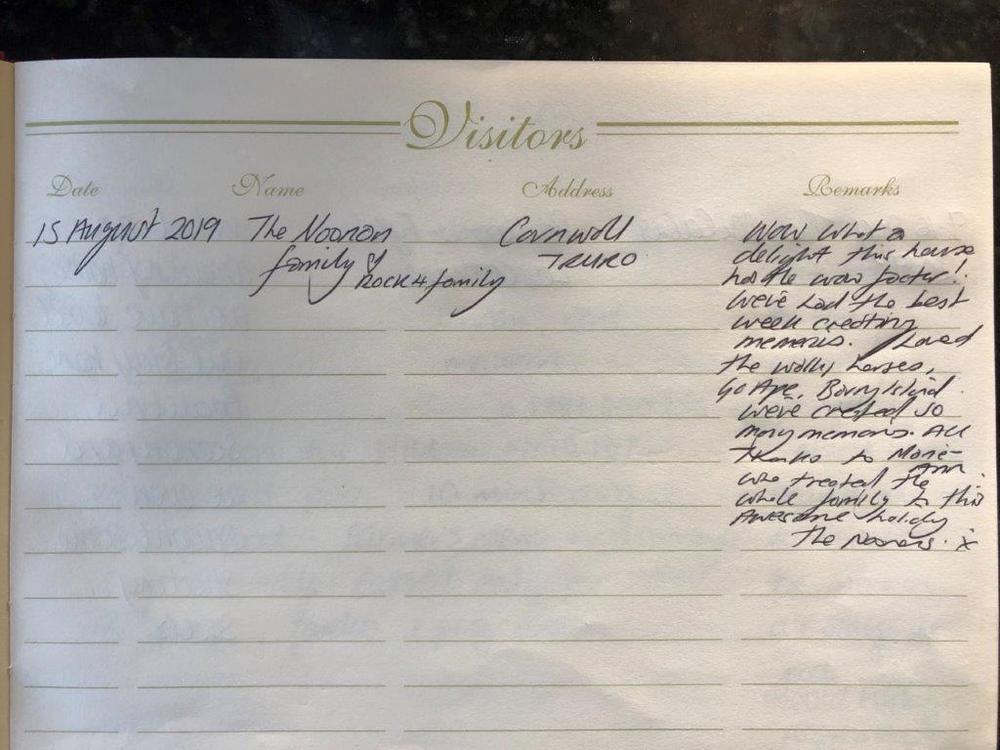 Visitors
Date Name Address Remarks
15 August 2019 The Noonan Cornwall Wow what a
family & TRURO delight this house
Rock 4 family has the wow factor!
Weve had the best
week creating
memories. Loved
the wally horses,
Go Ape, Barry Island.
Weve created so
many memories. All
thanks to Marie-
Ann
who treated the
whole family to this
Awesome holiday
The Noonans. x